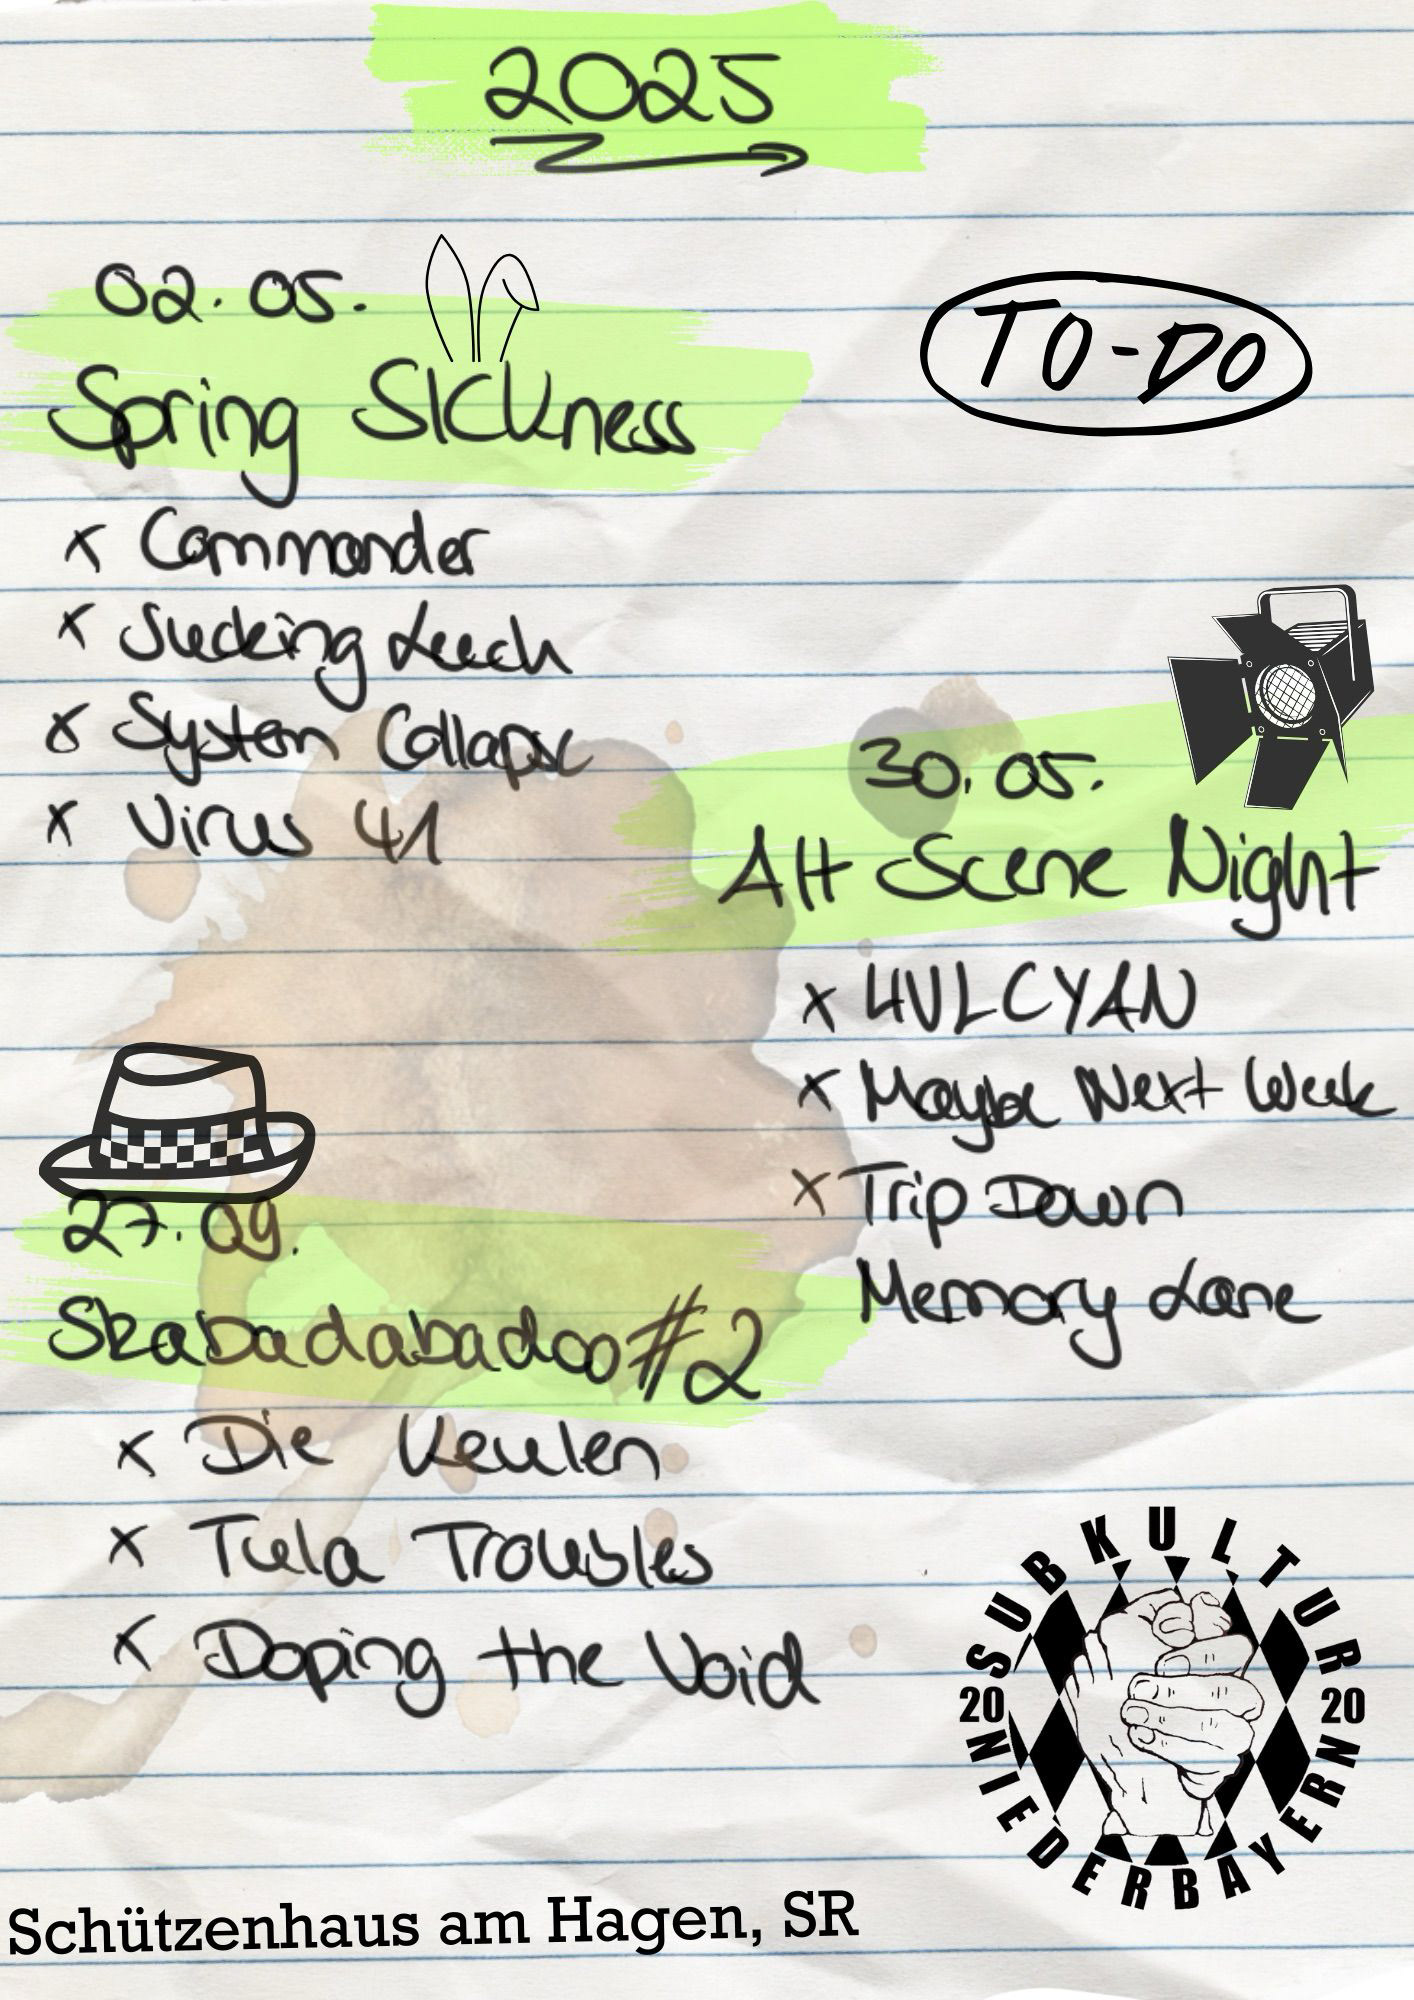 2025
02.05.
Spring SICKness
x Commander
x Sucking Leech
x System Collapse
x Virus 41
TO-DO
30.05.
Alt Scene Night
x HVLCYAN
x Maybe Next Week
x Trip Down
Memory Lane
27.09.
Skabadabadoo #2
x Die Keulen
x Tula Troubles
x Doping the Void
SUBKULTUR
20 20
NIEDERBAYERN
Schützenhaus am Hagen, SR